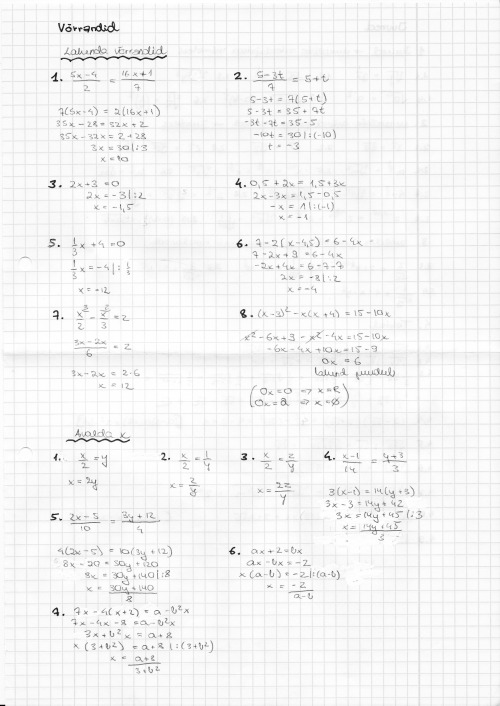 Võrrandid
Lahenda võrrandid
1. (5x-4)/2 = (16x+1)/7
7(5x-4) = 2(16x+1)
35x-28 = 32x+2
35x-32x = 2+28
3x = 30 |:3
x = 10
2. (5-3t)/7 = 5+t
5-3t = 7(5+t)
5-3t = 35+7t
-3t-7t = 35-5
-10t = 30 |:(-10)
t = -3
3. 2x+3 = 0
2x = -3 |:2
x = -1,5
4. 0,5+2x = 1,5+3x
2x-3x = 1,5-0,5
-x = 1 |:(-1)
x = -1
5. 1/3 x + 4 = 0
1/3 x = -4 |: 1/3
x = -12
6. 7-2(x-4,5) = 6-4x
7-2x+9 = 6-4x
-2x+4x = 6-7-7
2x = -8 |:2
x = -4
7. x/2 - x/3 = 2
(3x-2x)/6 = 2
3x-2x = 2·6
x = 12
8. (x-3)²-x(x+4) = 15-10x
x²-6x+9-x²-4x = 15-10x
-6x-4x+10x = 15-9
0x = 6
lahend puudub
(0x=0 => x=R
0x=a => x=Ø)
Avalda x
1. x/2 = y
x = 2y
2. x/2 = 1/y
x = 2/y
3. x/2 = z/y
x = 2z/y
4. (x-1)/14 = (y+3)/3
3(x-1) = 14(y+3)
3x-3 = 14y+42
3x = 14y+45 |:3
x = (14y+45)/3
5. (2x-5)/10 = (3y+12)/4
4(2x-5) = 10(3y+12)
8x-20 = 30y+120
8x = 30y+140 |:8
x = (30y+140)/8
6. ax+2 = bx
ax-bx = -2
x(a-b) = -2 |:(a-b)
x = -2/(a-b)
7. 7x-4(x+2) = a-b²x
7x-4x-8 = a-b²x
3x+b²x = a+8
x(3+b²) = a+8 |:(3+b²)
x = (a+8)/(3+b²)